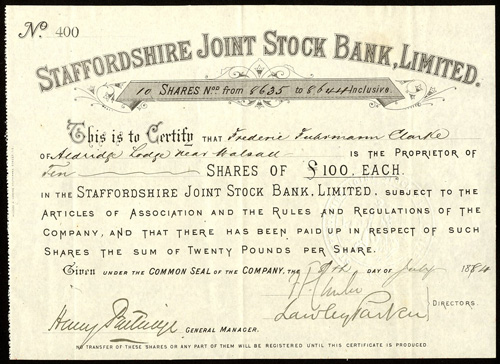 No. 400
STAFFORDSHIRE JOINT STOCK BANK, LIMITED.
10 SHARES Nos. from 8635 to 8644 Inclusive.
This is to Certify THAT Frederic Fuhrmann Clarke
OF Aldridge Lodge near Walsall IS THE PROPRIETOR OF
Ten SHARES OF £100. EACH.
IN THE STAFFORDSHIRE JOINT STOCK BANK, LIMITED. SUBJECT TO THE
ARTICLES OF ASSOCIATION AND THE RULES AND REGULATIONS OF THE
COMPANY, AND THAT THERE HAS BEEN PAID UP IN RESPECT OF SUCH
SHARES THE SUM OF TWENTY POUNDS PER SHARE.
Given UNDER THE COMMON SEAL OF THE COMPANY, THE 9th DAY OF July 1884
DIRECTORS.
Lawley Parker
Henry Partridge GENERAL MANAGER.
NO TRANSFER OF THESE SHARES OR ANY PART OF THEM WILL BE REGISTERED UNTIL THIS CERTIFICATE IS PRODUCED